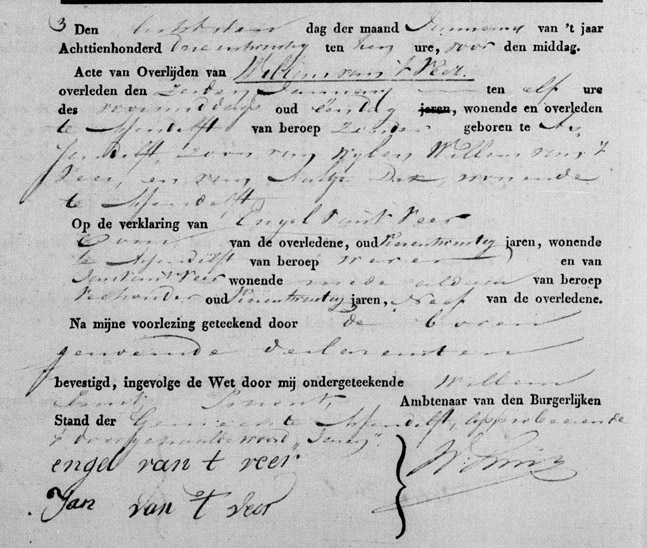 3 Den achtsten dag der maand January van 't jaar
Achttienhonderd drieentwintig ten tien ure, voor den middag.
Acte van Overlijden van Willem van 't Veer
overleden den zesden January ten elf ure
des voormiddags oud één dag jaren, wonende en overleden
te Assendelft van beroep zonder geboren te As
sendelft, zoon van wylen Willem van 't
Veer, en van Aaltje Dak, wonende
te Assendelft
Op de verklaring van Engel van 't Veer
Oom van de overledene, oud jaren, wonende
te Assendelft van beroep wever en van
Jan van 't Veer wonende mede aldaar van beroep
oud jaren, Neef van de overledene.
Na mijne voorlezing geteekend door de boven
genoemde declaranten
bevestigd, ingevolge de Wet door mij ondergeteekende Willem
Ambtenaar van den Burgerlijken
Stand der Gemeente Assendelft,
engel van t veer
Jan van 't veer